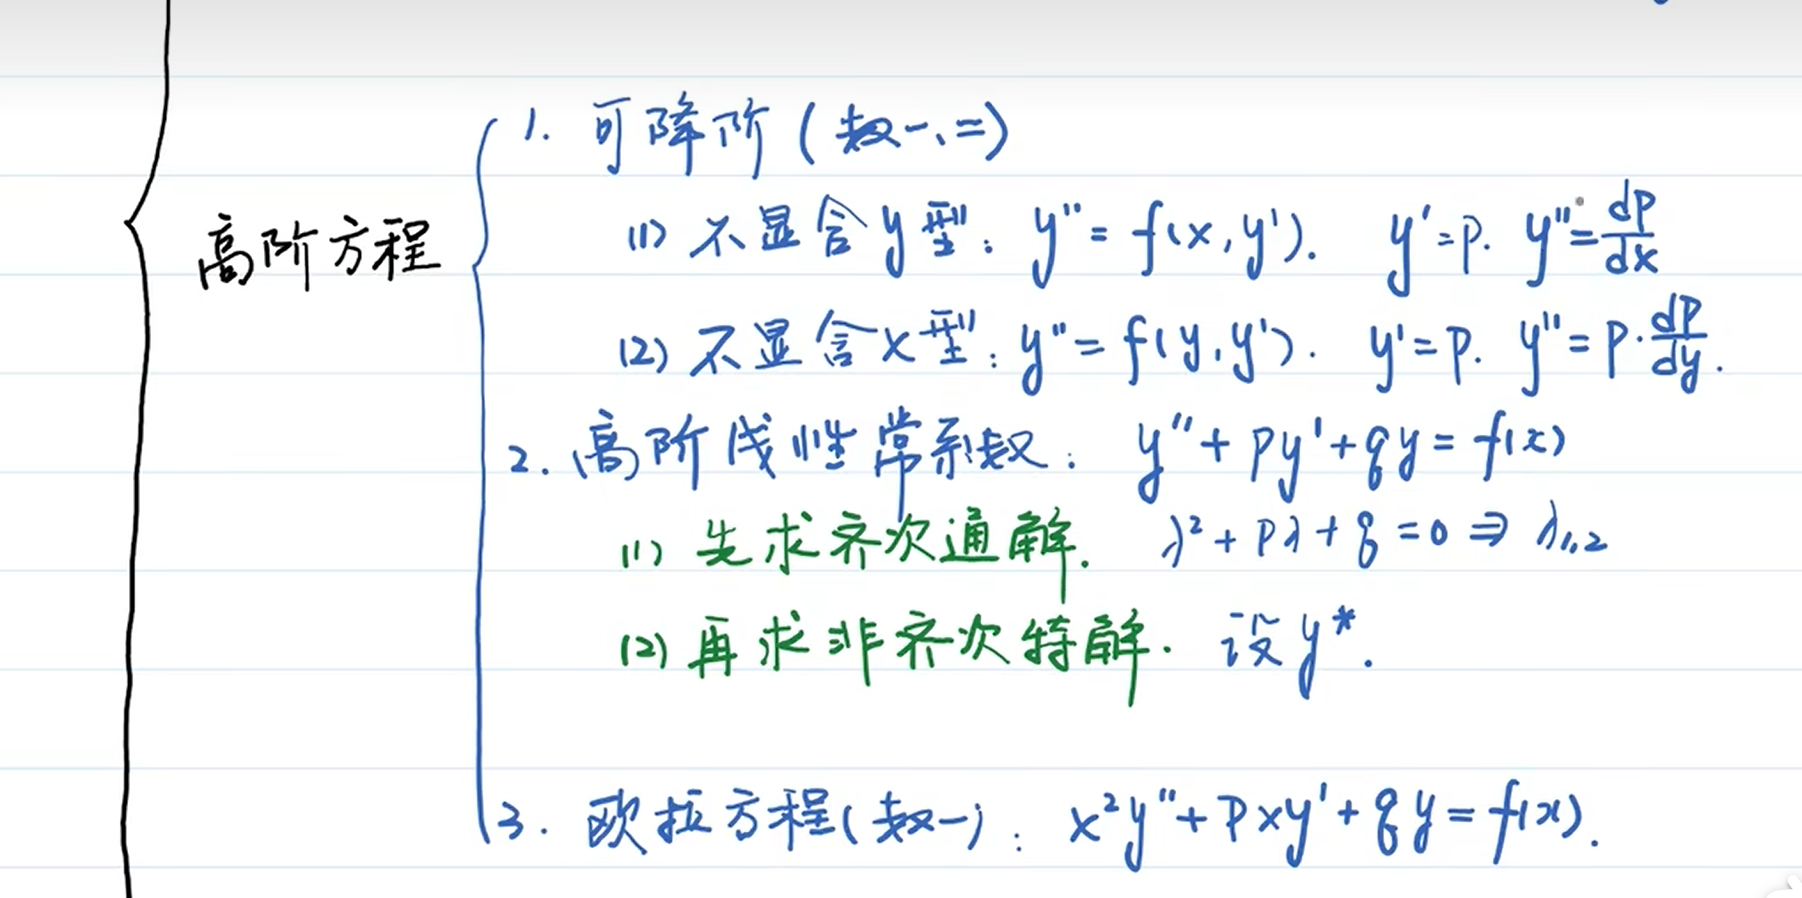 高阶方程
1. 可降阶 (数一、二)
(1) 不显含y型: y'' = f(x, y'). y' = p. y'' = dp/dx
(2) 不显含x型: y'' = f(y, y'). y' = p. y'' = p·dp/dy.
2. 高阶线性常系数: y'' + py' + qy = f(x)
(1) 先求齐次通解. λ² + pλ + q = 0 ⇒ λ₁,₂
(2) 再求非齐次特解. 设y*.
3. 欧拉方程(数一): x²y'' + pxy' + qy = f(x).